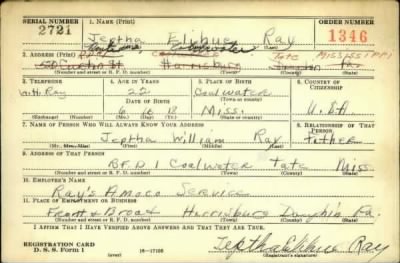 SERIAL NUMBER 1. NAME (Print) ORDER NUMBER
2721 Jeptha Elihue Ray 1346
(First) (Middle) (Last)
2. ADDRESS (Print) Coldwater Tate MISSISSIPPI
Harrisburg Pa.
(Number and street or R. F. D. number) (Town) (County) (State)
3. TELEPHONE 4. AGE IN YEARS 5. PLACE OF BIRTH 6. COUNTRY OF CITIZENSHIP
W.H. Ray 22 Coal water
DATE OF BIRTH (Town or county)
6 10 18 Miss. U.S.A.
(Exchange) (Number) (Mo.) (Day) (Yr.) (State or country)
7. NAME OF PERSON WHO WILL ALWAYS KNOW YOUR ADDRESS 8. RELATIONSHIP OF THAT PERSON
Jeptha William Ray Father
(Mr., Mrs., Miss) (First) (Middle) (Last)
9. ADDRESS OF THAT PERSON
R.F.D 1 Coal Water Tate Miss.
(Number and street or R. F. D. number) (Town) (County) (State)
10. EMPLOYER'S NAME
Ray's Amoco Service
11. PLACE OF EMPLOYMENT OR BUSINESS
Front & Broad Harrisburg Dauphin Pa.
(Number and street or R. F. D. number) (Town) (County) (State)
I AFFIRM THAT I HAVE VERIFIED ABOVE ANSWERS AND THAT THEY ARE TRUE.
REGISTRATION CARD
D. S. S. Form 1 (over) 16-17105 Jeptha Elihue Ray
(Registrant's signature)